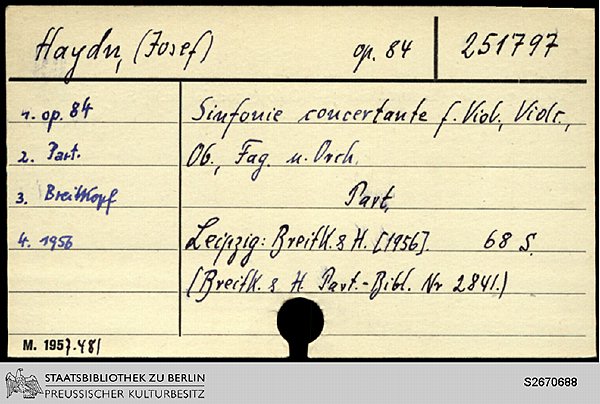 Haydn, (Josef) op. 84 251797
1. op. 84 Sinfonie concertante f. Viol., Violc.,
2. Part. Ob., Fag. u. Orch.
3. Breitkopf Part.
4. 1956 Leipzig: Breitk. & H. [1956]. 68 S.
(Breitk. & H. Part.-Bibl. Nr 2841.)
M. 1957.481
STAATSBIBLIOTHEK ZU BERLIN
PREUSSISCHER KULTURBESITZ
S2670688